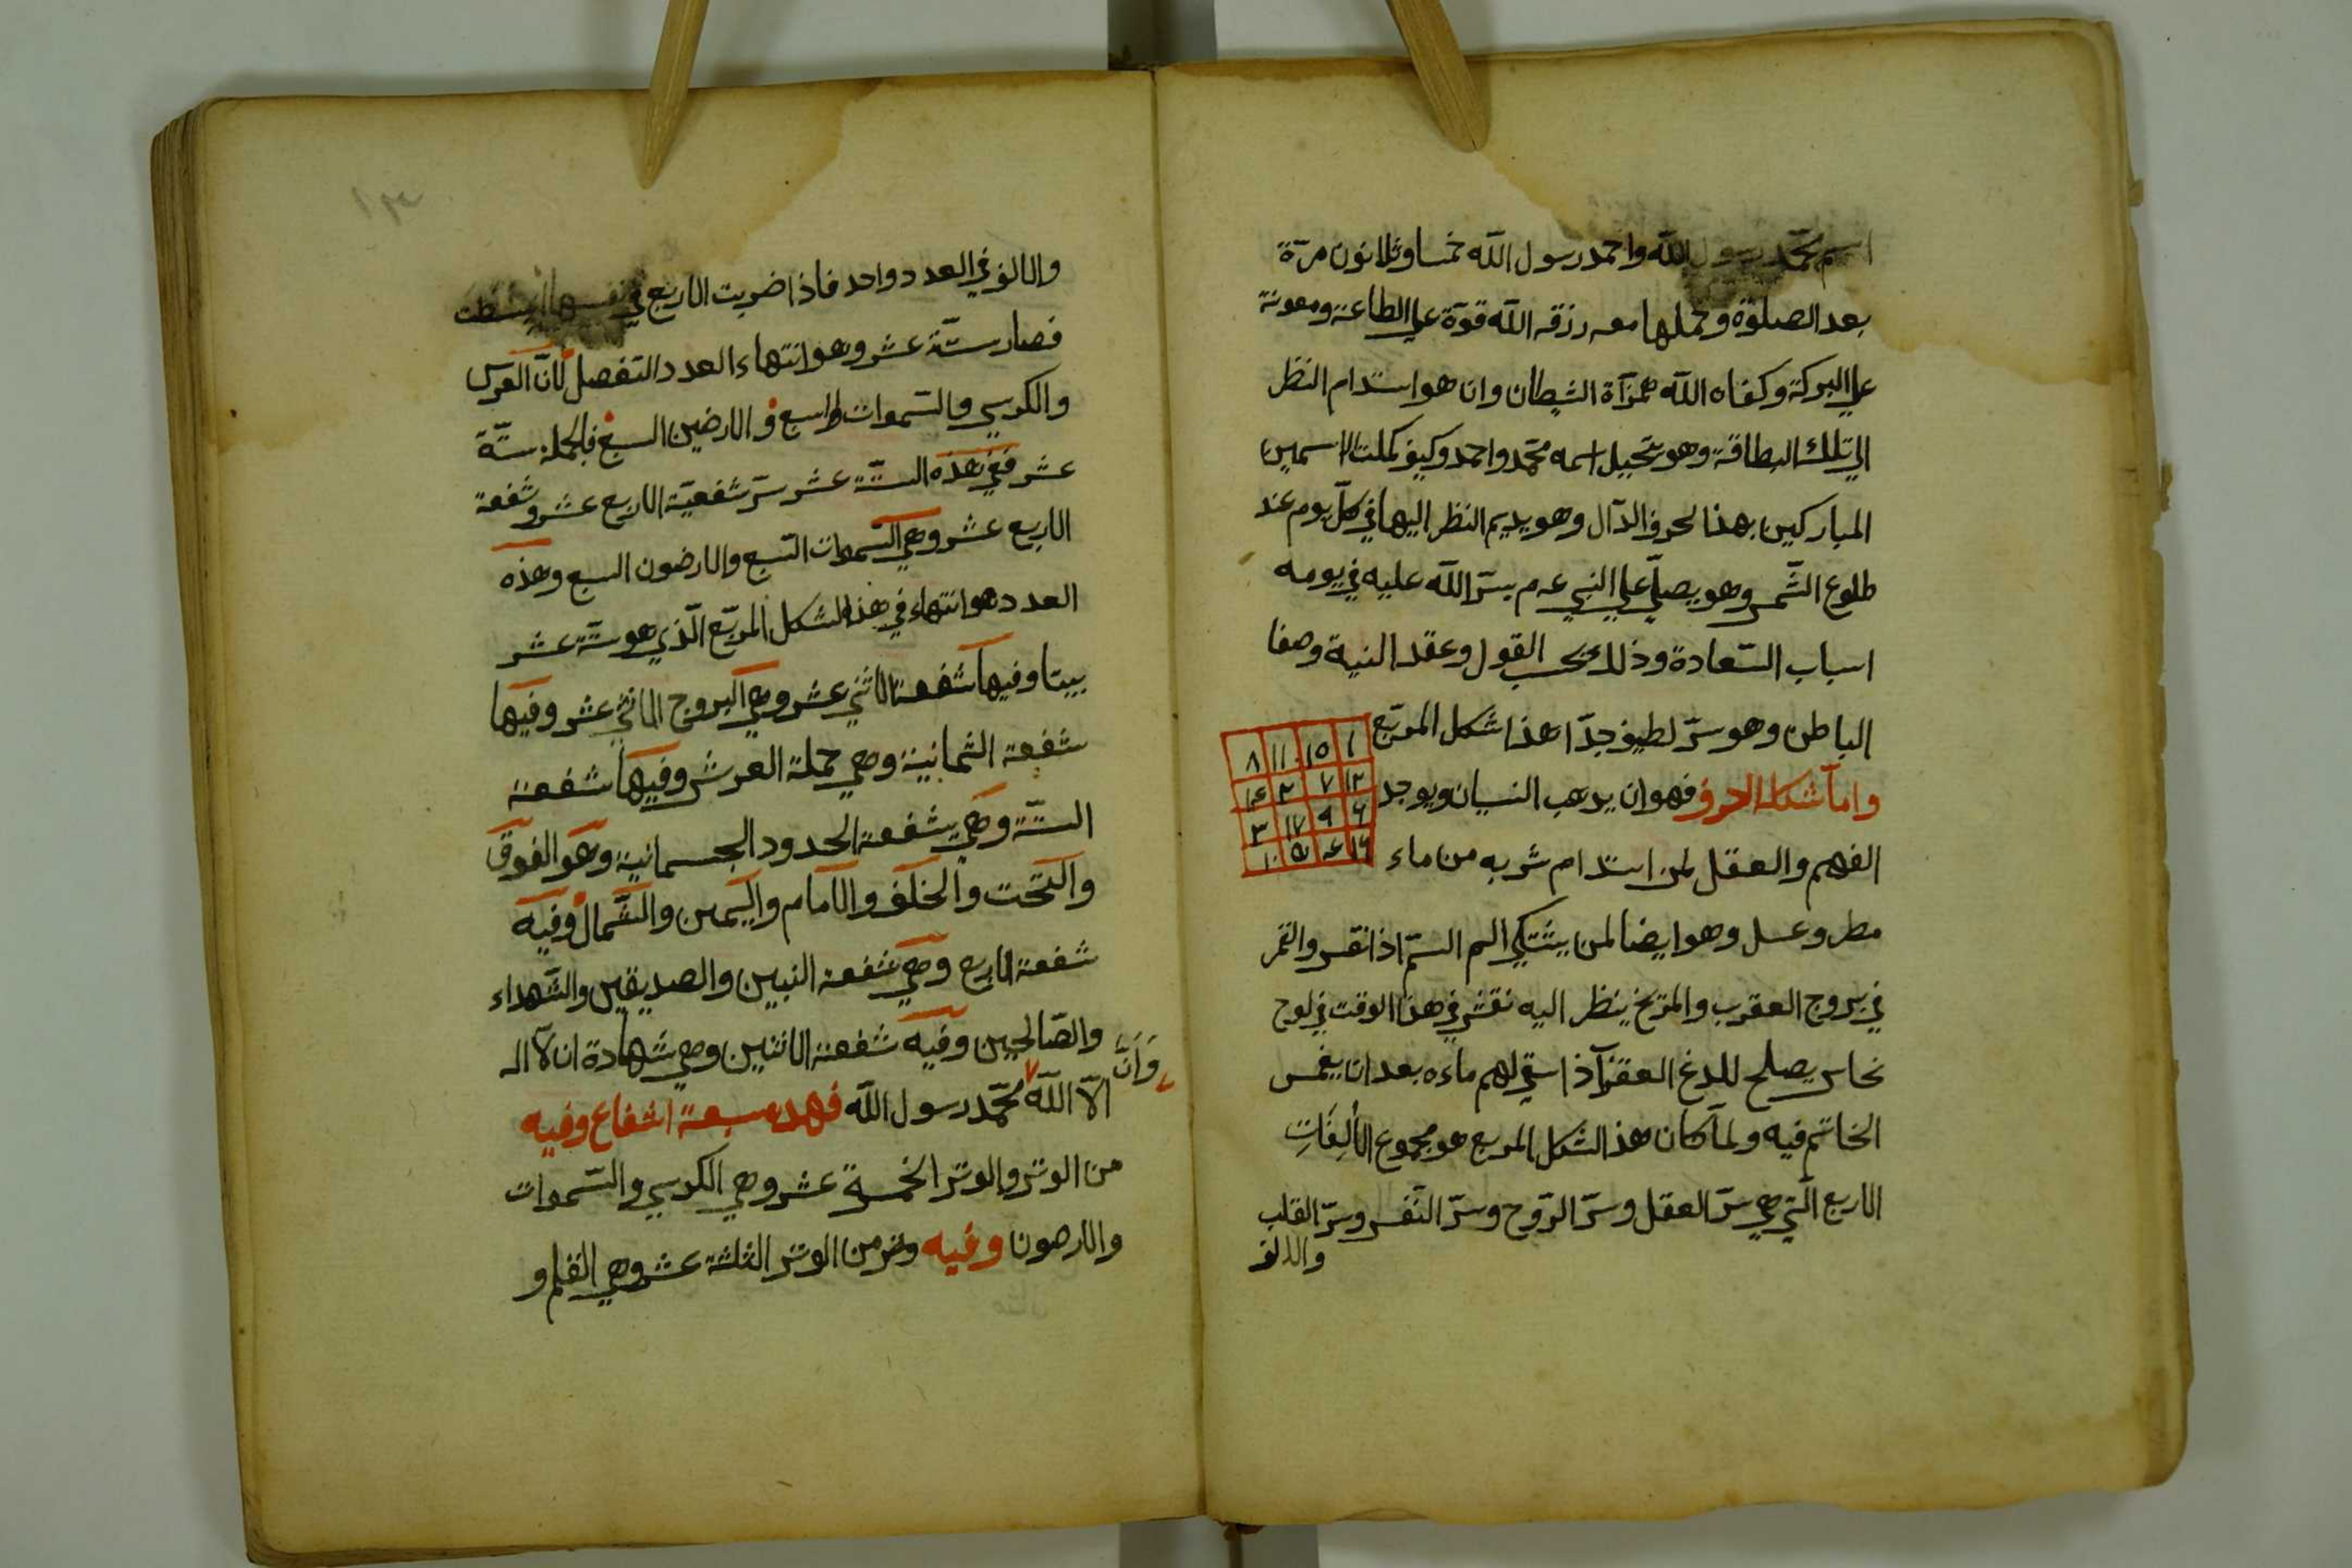 اسم محمد رسول الله واحمد رسول الله خمسا وثلاثون مرة
بعد الصلوة وحملها معه رزقه الله قوة علي الطاعة ومعونة
علي البركة وكفاه الله همزآة الشيطان وان هو استدام النظر
الي تلك البطاقة وهو يتخيل اسمه محمد واحمد وكيف كملت الاسمين
المباركين بهذا لحرف الدآل وهو يديم النظر اليها في كل يوم عند
طلوع الشمس وهو يصلي علي النبي عم يسر الله عليه في يومه
اسباب السعادة وذلك بحسب القول وعقد النية وصفا
الباطن وهو سر لطيف جدا هذا شكل المربع
١ ١٥ ١١ ٨
١٢ ٧ ٢ ١٤
٦ ٩ ١٧ ٣
١٦ ٤ ٥ ١٠
وامآ شكل الحرف فهو ان يدهب النسيان ويوجد
الفهم والعقل لمن استدام شربه من ماء
مطر وعسل وهو ايضا لمن يشتكي الم السم اذا نقس والقمر
في بروج العقرب والمريخ ينظر اليه نقش في هذا الوقت في لوح
نحاس يصلح للدغ العقرب اذا سقي لهم ماءه بعد ان يغمس
الخاتم فيه ولما كان هذ الشكل المربع هو مجموع الألِفَاتِ
الاربع التي هي سر العقل وسر الروح وسر النفس وسر القلب
والالف
١٣
والالف في العدد واحد فاذا ضربت الاربع في نفسها انبسطت
فصار ستة عشر وهو انتهاء العدد التفصل لأن العرش
والكرسي والسموات السبع والارضين السبع فالجملة ستة
عشر ففي هذه الستة عشر سر شفعية الاربع عشر وشفعة
الاربع عشر وهي السموات السبع والارضون السبع وهذه
العدد هو انتهاء في هذا الشكل المربع الذي هو ستة عشر
بيتا وفيها شفعة الاثني عشر وهي البروج الاثني عشر وفيها
شفعة الثمانية وهي حملة العرش وفيها شفعة
الستة وهي شفعة الحدود الجسمانية وهو الفوق
والتحت والخلف والامام واليمين والشمال وفيه
شفعة الاربع وهي شفعة النبيين والصديقين والشهداء
والصالحين وفيه شفعة الاثنين وهي شهادة ان لآ اله
وَاَنَّ
الا الله محمد رسول الله فهده سبعة اشفاع وفيه
من الوتر والوتر الخمسة عشر وهي الكرسي والسموات
والارصون وفيه وتر من الوتر الثلثة عشر وهي القلم و